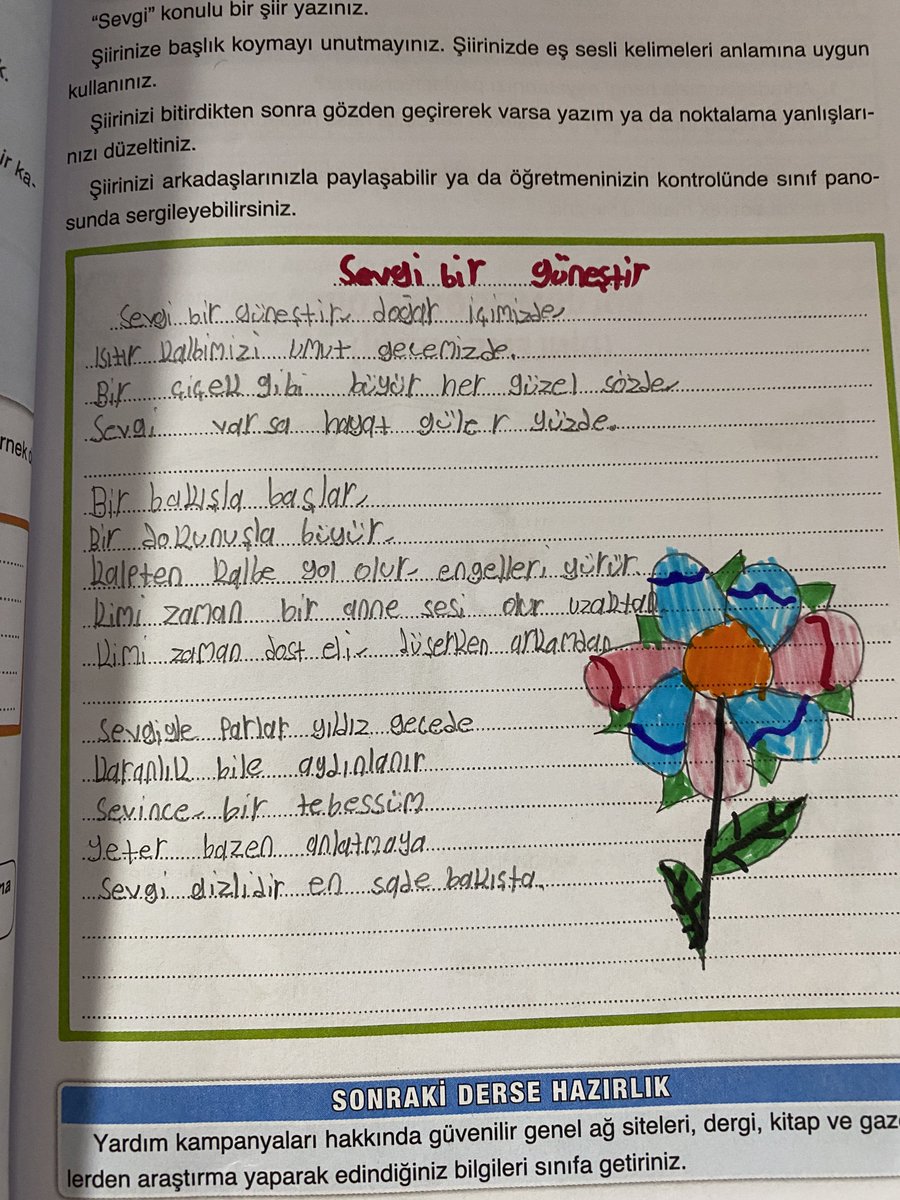 "Sevgi" konulu bir şiir yazınız.
Şiirinize başlık koymayı unutmayınız. Şiirinizde eş sesli kelimeleri anlamına uygun
kullanınız.
Şiirinizi bitirdikten sonra gözden geçirerek varsa yazım ya da noktalama yanlışları-
nızı düzeltiniz.
Şiirinizi arkadaşlarınızla paylaşabilir ya da öğretmeninizin kontrolünde sınıf pano-
sunda sergileyebilirsiniz.
Sevgi bir güneştir
Sevgi bir güneştir, doğar içimizde,
Isıtır kalbimizi umut gecemizde.
Bir çiçek gibi büyür her güzel sözde,
Sevgi varsa hayat güler yüzde.
Bir bakışla başlar,
Bir dokunuşla büyür,
Kalpten kalbe yol olur, engelleri yürür.
Kimi zaman bir anne sesi olur uzaktan,
Kimi zaman dost eli, düşerken arkamdan
Sevgiyle parlar yıldız gecede
Karanlık bile aydınlanır
Sevince, bir tebessüm
yeter bazen anlatmaya
Sevgi dizlidir en sade bakışta.
SONRAKİ DERSE HAZIRLIK
Yardım kampanyaları hakkında güvenilir genel ağ siteleri, dergi, kitap ve gaze
lerden araştırma yaparak edindiğiniz bilgileri sınıfa getiriniz.